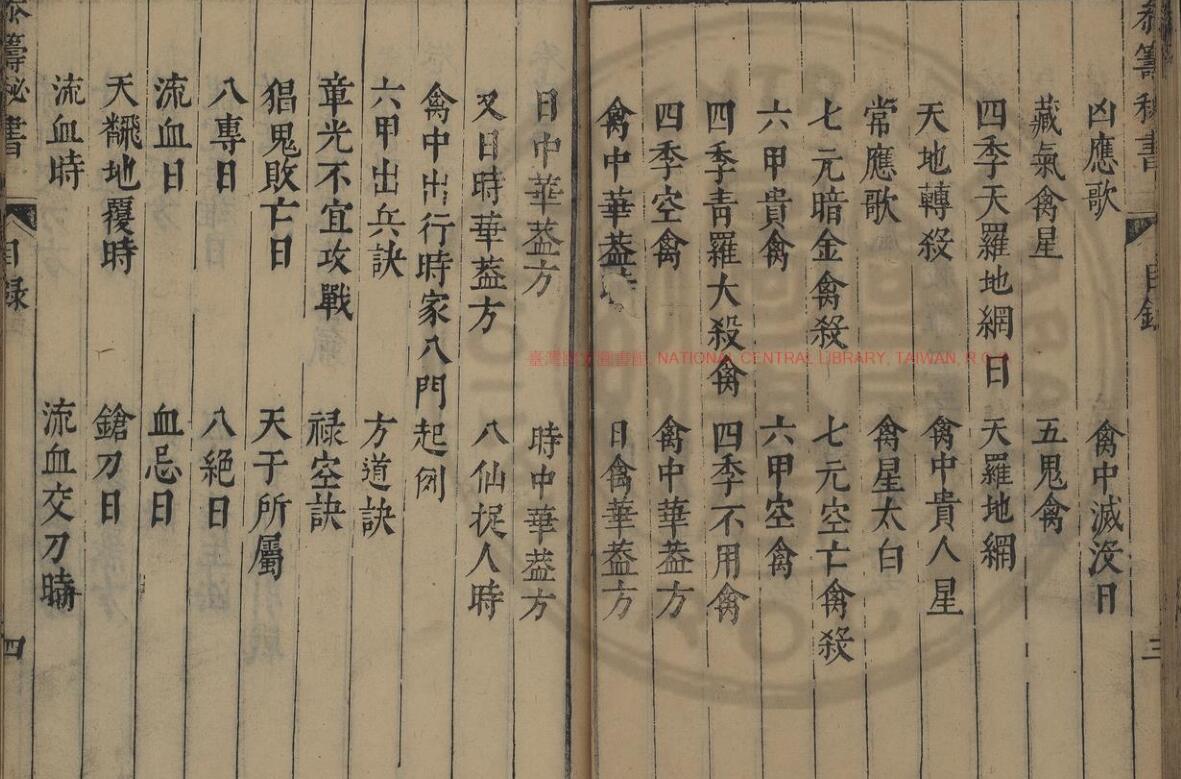 秘書 目錄 三
凶應歌 禽中滅没日
藏氣禽星 五鬼禽
四季天羅地網日 天羅地網
天地轉殺 禽中貴人星
常應歌 禽星太白
七元暗金禽殺 七元空亡禽殺
六甲貴禽 六甲空禽
四季青羅大殺禽 四季不用禽
四季空禽 禽中華葢方
禽中華葢時 日禽華葢方
日中華葢方 時中華葢方
又日時華葢方 八仙捉人時
禽中出行時家八門起例
六甲出兵訣 方道訣
章光不宜攻戰 禄空訣
猖鬼敗亡日 天干所屬
八專日 八絕日
流血日 血忌日
天翻地覆時 鎗刀日
流血時 流血交刀時
籌秘書 目録 四
臺灣國家圖書館, NATIONAL CENTRAL LIBRARY, TAIWAN, R.O.C